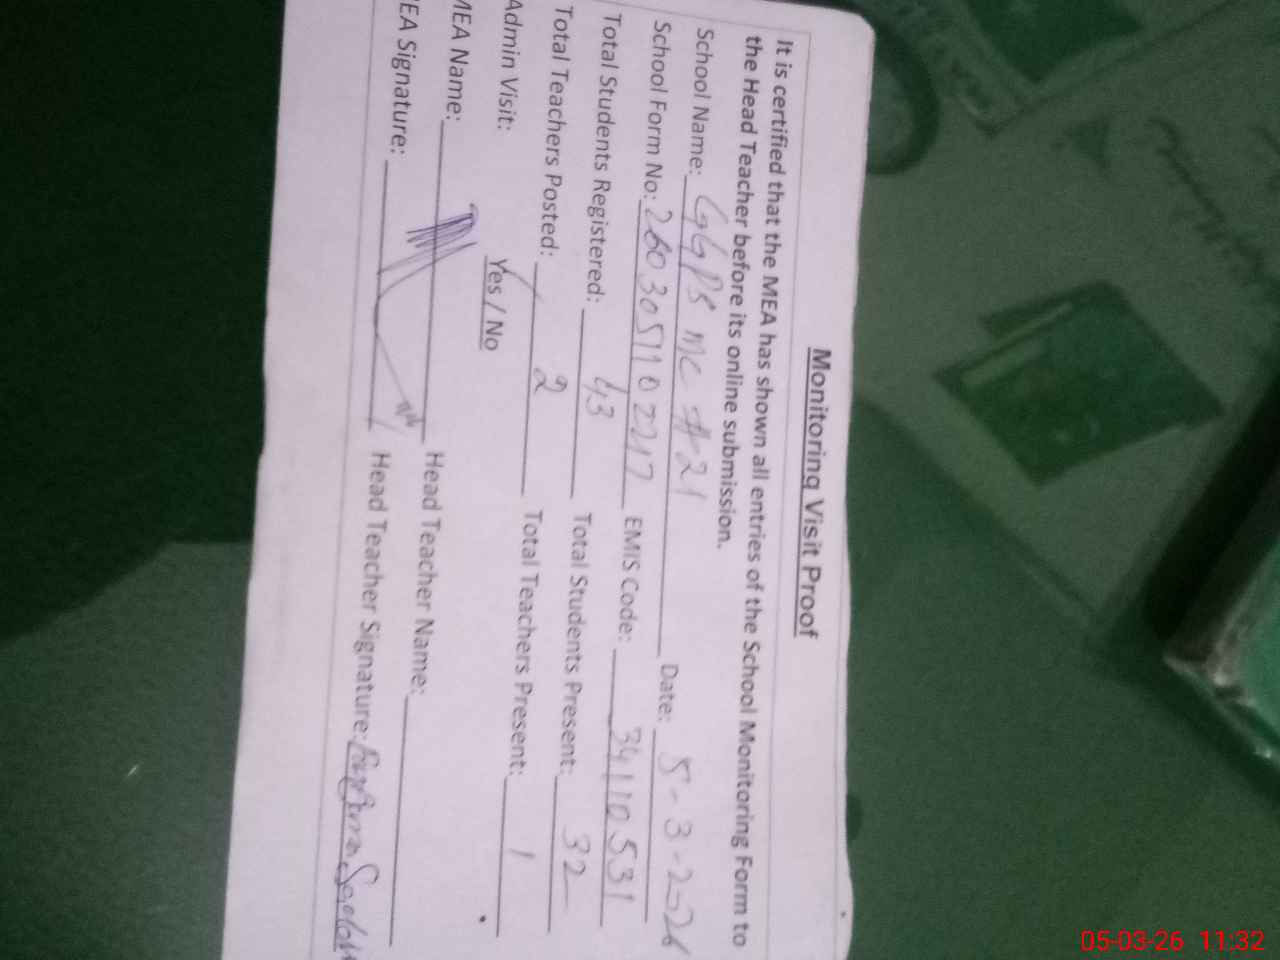 Monitoring Visit Proof
It is certified that the MEA has shown all entries of the School Monitoring Form to
the Head Teacher before its online submission.
School Name: GGPS MC # 21 Date: 5-3-2026
School Form No: 2603051102217 EMIS Code: 34110531
Total Students Registered: 43 Total Students Present: 32
Total Teachers Posted: 2 Total Teachers Present: 1
Admin Visit: Yes / No
MEA Name: Head Teacher Name:
EA Signature: Head Teacher Signature:
05-03-26 11:32